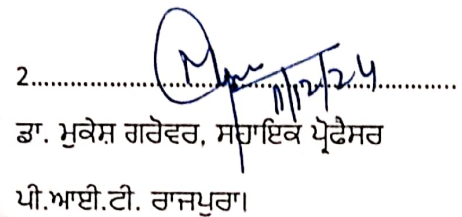 2........................................................
11/12/24
ਡਾ. ਮੁਕੇਸ਼ ਗਰੋਵਰ, ਸਹਾਇਕ ਪ੍ਰੋਫੈਸਰ
ਪੀ.ਆਈ.ਟੀ. ਰਾਜਪੁਰਾ।